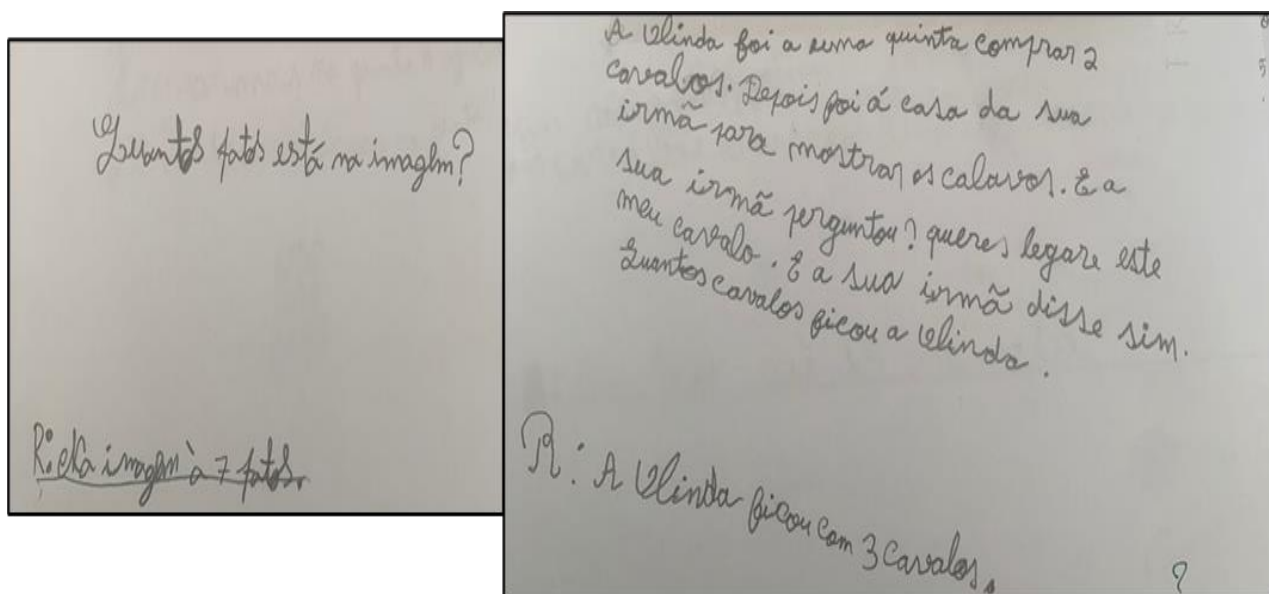 Quantos fatos está na imagem?
R: Na imagem à 7 fatos.
A Olinda foi a uma quinta comprar 2
cavalos. Depois foi á casa da sua
irmã para mostrar os calavos. E a
sua irmã perguntou? queres legare este
meu cavalo. E a sua irmã disse sim.
Quantos cavalos ficou a Olinda.
R: A Olinda ficou com 3 cavalos.